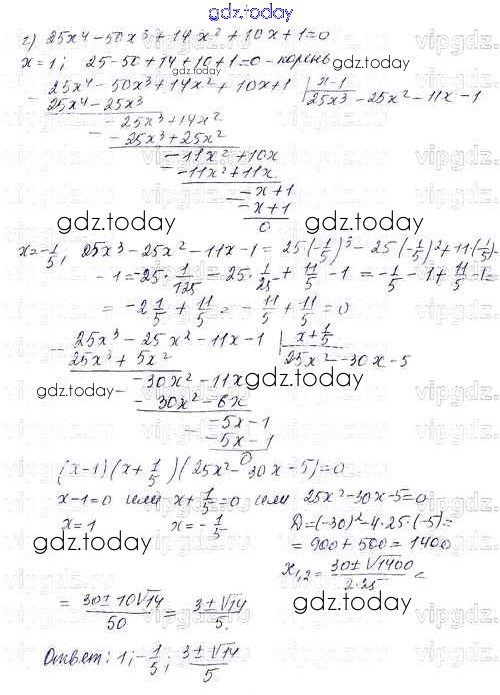 gdz.today
г) 25x⁴ - 50x³ + 14x² + 10x + 1 = 0
x = 1; 25 - 50 + 14 + 10 + 1 = 0 - корень
gdz.today
25x⁴ - 50x³ + 14x² + 10x + 1 | x - 1
25x⁴ - 25x³ | 25x³ - 25x² - 11x - 1
- 25x³ + 14x²
- 25x³ + 25x²
- 11x² + 10x
- 11x² + 11x
- x + 1
- x + 1
0
gdz.today gdz.today
x = -1/5, 25x³ - 25x² - 11x - 1 = 25·(-1/5)³ - 25(-1/5)² + 11·(1/5) -
- 1 = -25·1/125 - 25·1/25 + 11/5 - 1 = -1/5 - 1 + 11/5 - 1 =
= -2 1/5 + 11/5 = - 11/5 + 11/5 = 0
25x³ - 25x² - 11x - 1 | x + 1/5
25x³ + 5x² | 25x² - 30x - 5
gdz.today gdz.today
- 30x² - 11x
- 30x² - 6x
- 5x - 1
- 5x - 1
0
(x-1)(x + 1/5)(25x² - 30x - 5) = 0
x - 1 = 0 или x + 1/5 = 0 или 25x² - 30x - 5 = 0
x = 1 x = -1/5 Д = (-30)² - 4·25·(-5) =
= 900 + 500 = 1400
gdz.today
x₁,₂ = (30 ± √1400)/(2·25) =
gdz.today
= (30 ± 10√14)/50 = (3 ± √14)/5.
Ответ: 1; -1/5; (3 ± √14)/5